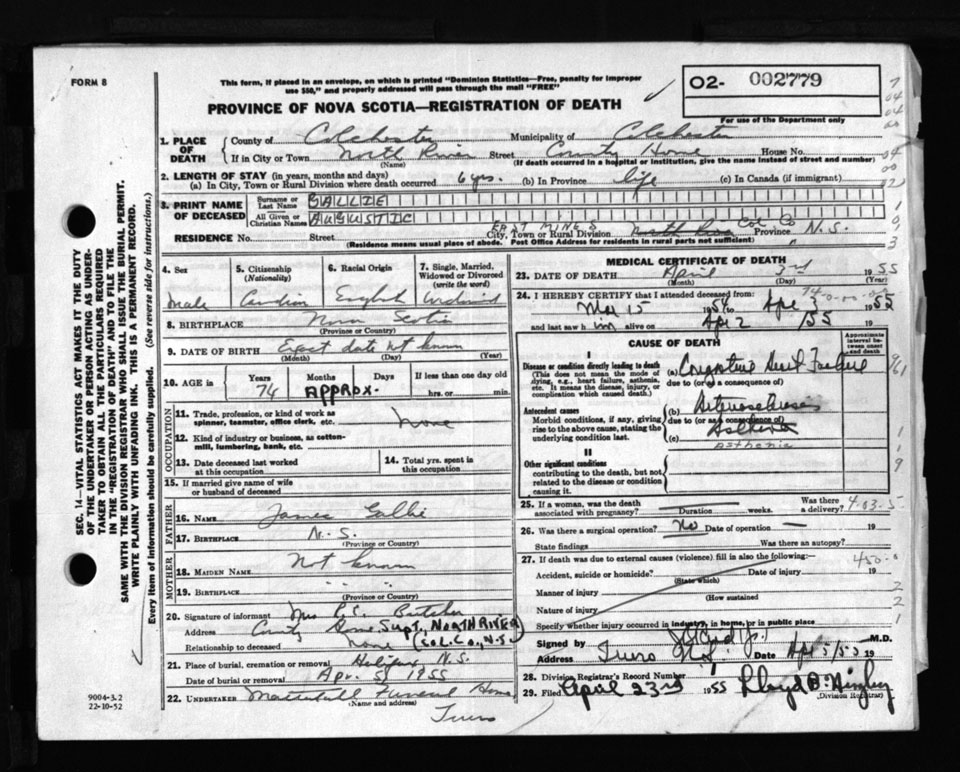 FORM 8
This form, if placed in an envelope, on which is printed "Dominion Statistics—Free, penalty for improper
use $50," and properly addressed will pass through the mail "FREE"
O2- 002779
For use of the Department only
PROVINCE OF NOVA SCOTIA—REGISTRATION OF DEATH
1. PLACE OF DEATH
County of Colchester Municipality of Colchester
If in City or Town North River Street County Home House No.
(Name) (If death occurred in a hospital or institution, give the name instead of street and number)
2. LENGTH OF STAY (in years, months and days)
(a) In City, Town or Rural Division where death occurred 6 yrs. (b) In Province life (c) In Canada (if immigrant)
3. PRINT NAME OF DECEASED
Surname or Last Name GALLIE
All Given or Christian Names
EAST MINES
RESIDENCE No. Street City, Town or Rural Division Col Co Province N.S.
(Residence means usual place of abode. Post Office Address for residents in rural parts not sufficient)
4. Sex
Male
5. Citizenship
(Nationality)
6. Racial Origin
English
7. Single, Married, Widowed or Divorced
(write the word)
8. BIRTHPLACE Nova Scotia
(Province or Country)
9. DATE OF BIRTH Exact date not known
(Month) (Day) (Year)
10. AGE in
Years 74
Months
Days
APPROX.
If less than one day old
hrs. or min.
OCCUPATION
11. Trade, profession, or kind of work as
spinner, teamster, office clerk, etc. None
12. Kind of industry or business, as cotton-
mill, lumbering, bank, etc.
13. Date deceased last worked
at this occupation
14. Total yrs. spent in
this occupation
15. If married give name of wife
or husband of deceased
FATHER
16. NAME James Gallie
17. BIRTHPLACE N.S.
(Province or Country)
MOTHER
18. MAIDEN NAME Not known
19. BIRTHPLACE " " "
(Province or Country)
20. Signature of informant Mrs Butcher
Address County Home Supt., NORTH RIVER
Relationship to deceased None COL. CO., N.S.
21. Place of burial, cremation or removal Halifax N.S.
Date of burial or removal Apr. 5, 1955
22. UNDERTAKER Mattatall Funeral Home,
(Name and address)
Truro
MEDICAL CERTIFICATE OF DEATH
23. DATE OF DEATH April 3rd 1955
(Month) (Day) (Year)
24. I HEREBY CERTIFY that I attended deceased from:
15 1954 to Apr 3 1955
and last saw him alive on Apr 2 1955
CAUSE OF DEATH
Approximate interval between onset and death
I
Disease or condition directly leading to death
(This does not mean the mode of
dying, e.g., heart failure, asthenia,
etc. It means the disease, injury, or
complication which caused death.)
(a) Congestive Heart Failure
due to (or as a consequence of)
Antecedent causes
Morbid conditions, if any, giving
rise to the above cause, stating the
underlying condition last.
(b) Arteriosclerosis
due to (or as a consequence of)
(c)
asthenia
II
Other significant conditions
contributing to the death, but not
related to the disease or condition
causing it.
25. If a woman, was the death
associated with pregnancy? Duration weeks. Was there
a delivery?
26. Was there a surgical operation? No Date of operation — 19
State findings Was there an autopsy?
27. If death was due to external causes (violence) fill in also the following:—
Accident, suicide or homicide? Date of injury 19
(State which)
Manner of injury
(How sustained
Nature of injury
Specify whether injury occurred in industry, in home, or in public place
Signed by M.D.
Address Truro N.S. Date Apr 5/55 19
28. Division Registrar's Record Number
29. Filed April 23rd 1955 Lloyd
(Division Registrar)
SEC. 14—VITAL STATISTICS ACT MAKES IT THE DUTY
OF THE UNDERTAKER OR PERSON ACTING AS UNDER-
TAKER TO OBTAIN ALL THE PARTICULARS REQUIRED
IN THE "REGISTRATION OF DEATH" AND TO FILE THE
SAME WITH THE DIVISION REGISTRAR WHO SHALL ISSUE THE BURIAL PERMIT.
WRITE PLAINLY WITH UNFADING INK. THIS IS A PERMANENT RECORD.
Every item of information should be carefully supplied. (See reverse side for instructions.)
9004-3.2
22-10-52